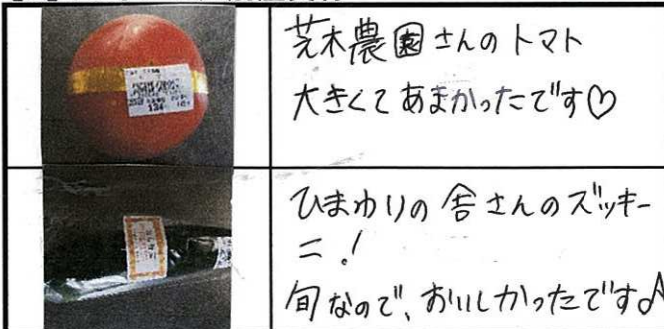 荒木農園さんのトマト
大きくてあまかったです♡
ひまわりの舎さんのズッキー
ニ!
旬なので、おいしかったです♪